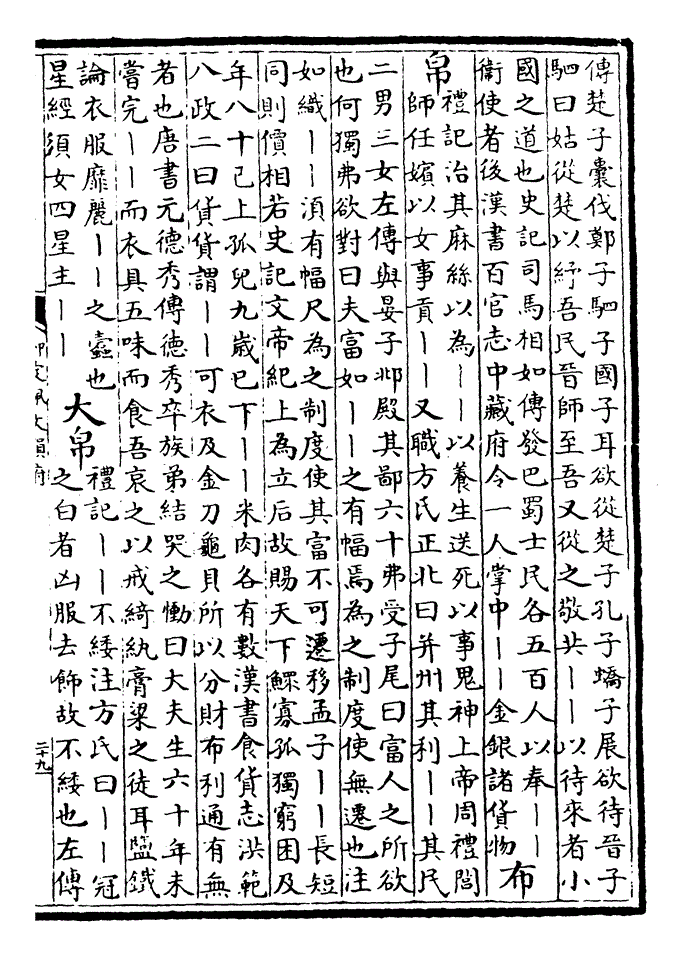 傳楚子囊伐鄭子駟子國子耳欲從楚子孔子蟜子展欲待晉子
駟曰姑從楚以紓吾民晉師至吾又從之敬共丨丨以待來者小
國之道也史記司馬相如傳發巴蜀士民各五百人以奉丨丨
衛使者後漢書百官志中藏府令一人掌中丨丨金銀諸貨物
布
帛
禮記治其麻絲以為丨丨以養生送死以事鬼神上帝周禮閭
師任嬪以女事貢丨丨又職方氏正北曰并州其利丨丨其民
二男三女左傳與晏子邶殿其鄙六十弗受子尾曰富人之所欲
也何獨弗欲對曰夫富如丨丨之有幅焉為之制度使無遷也注
如織丨丨須有幅尺為之制度使其富不可遷移孟子丨丨長短
同則價相若史記文帝紀上為立后故賜天下鰥寡孤獨窮困及
年八十已上孤兒九歲已下丨丨米肉各有數漢書食貨志洪範
八政二曰貨貨謂丨丨可衣及金刀龜貝所以分財布利通有無
者也唐書元德秀傳德秀卒族弟結哭之慟曰大夫生六十年未
嘗完丨丨而衣具五味而食吾哀之以戒綺紈膏粱之徒耳鹽鐵
論衣服靡麗丨丨之蠹也
星經須女四星主丨丨
大帛
禮記丨丨不緌注方氏曰丨丨冠
之白者凶服去飾故不緌也左傳
御定佩文韻府
二十九